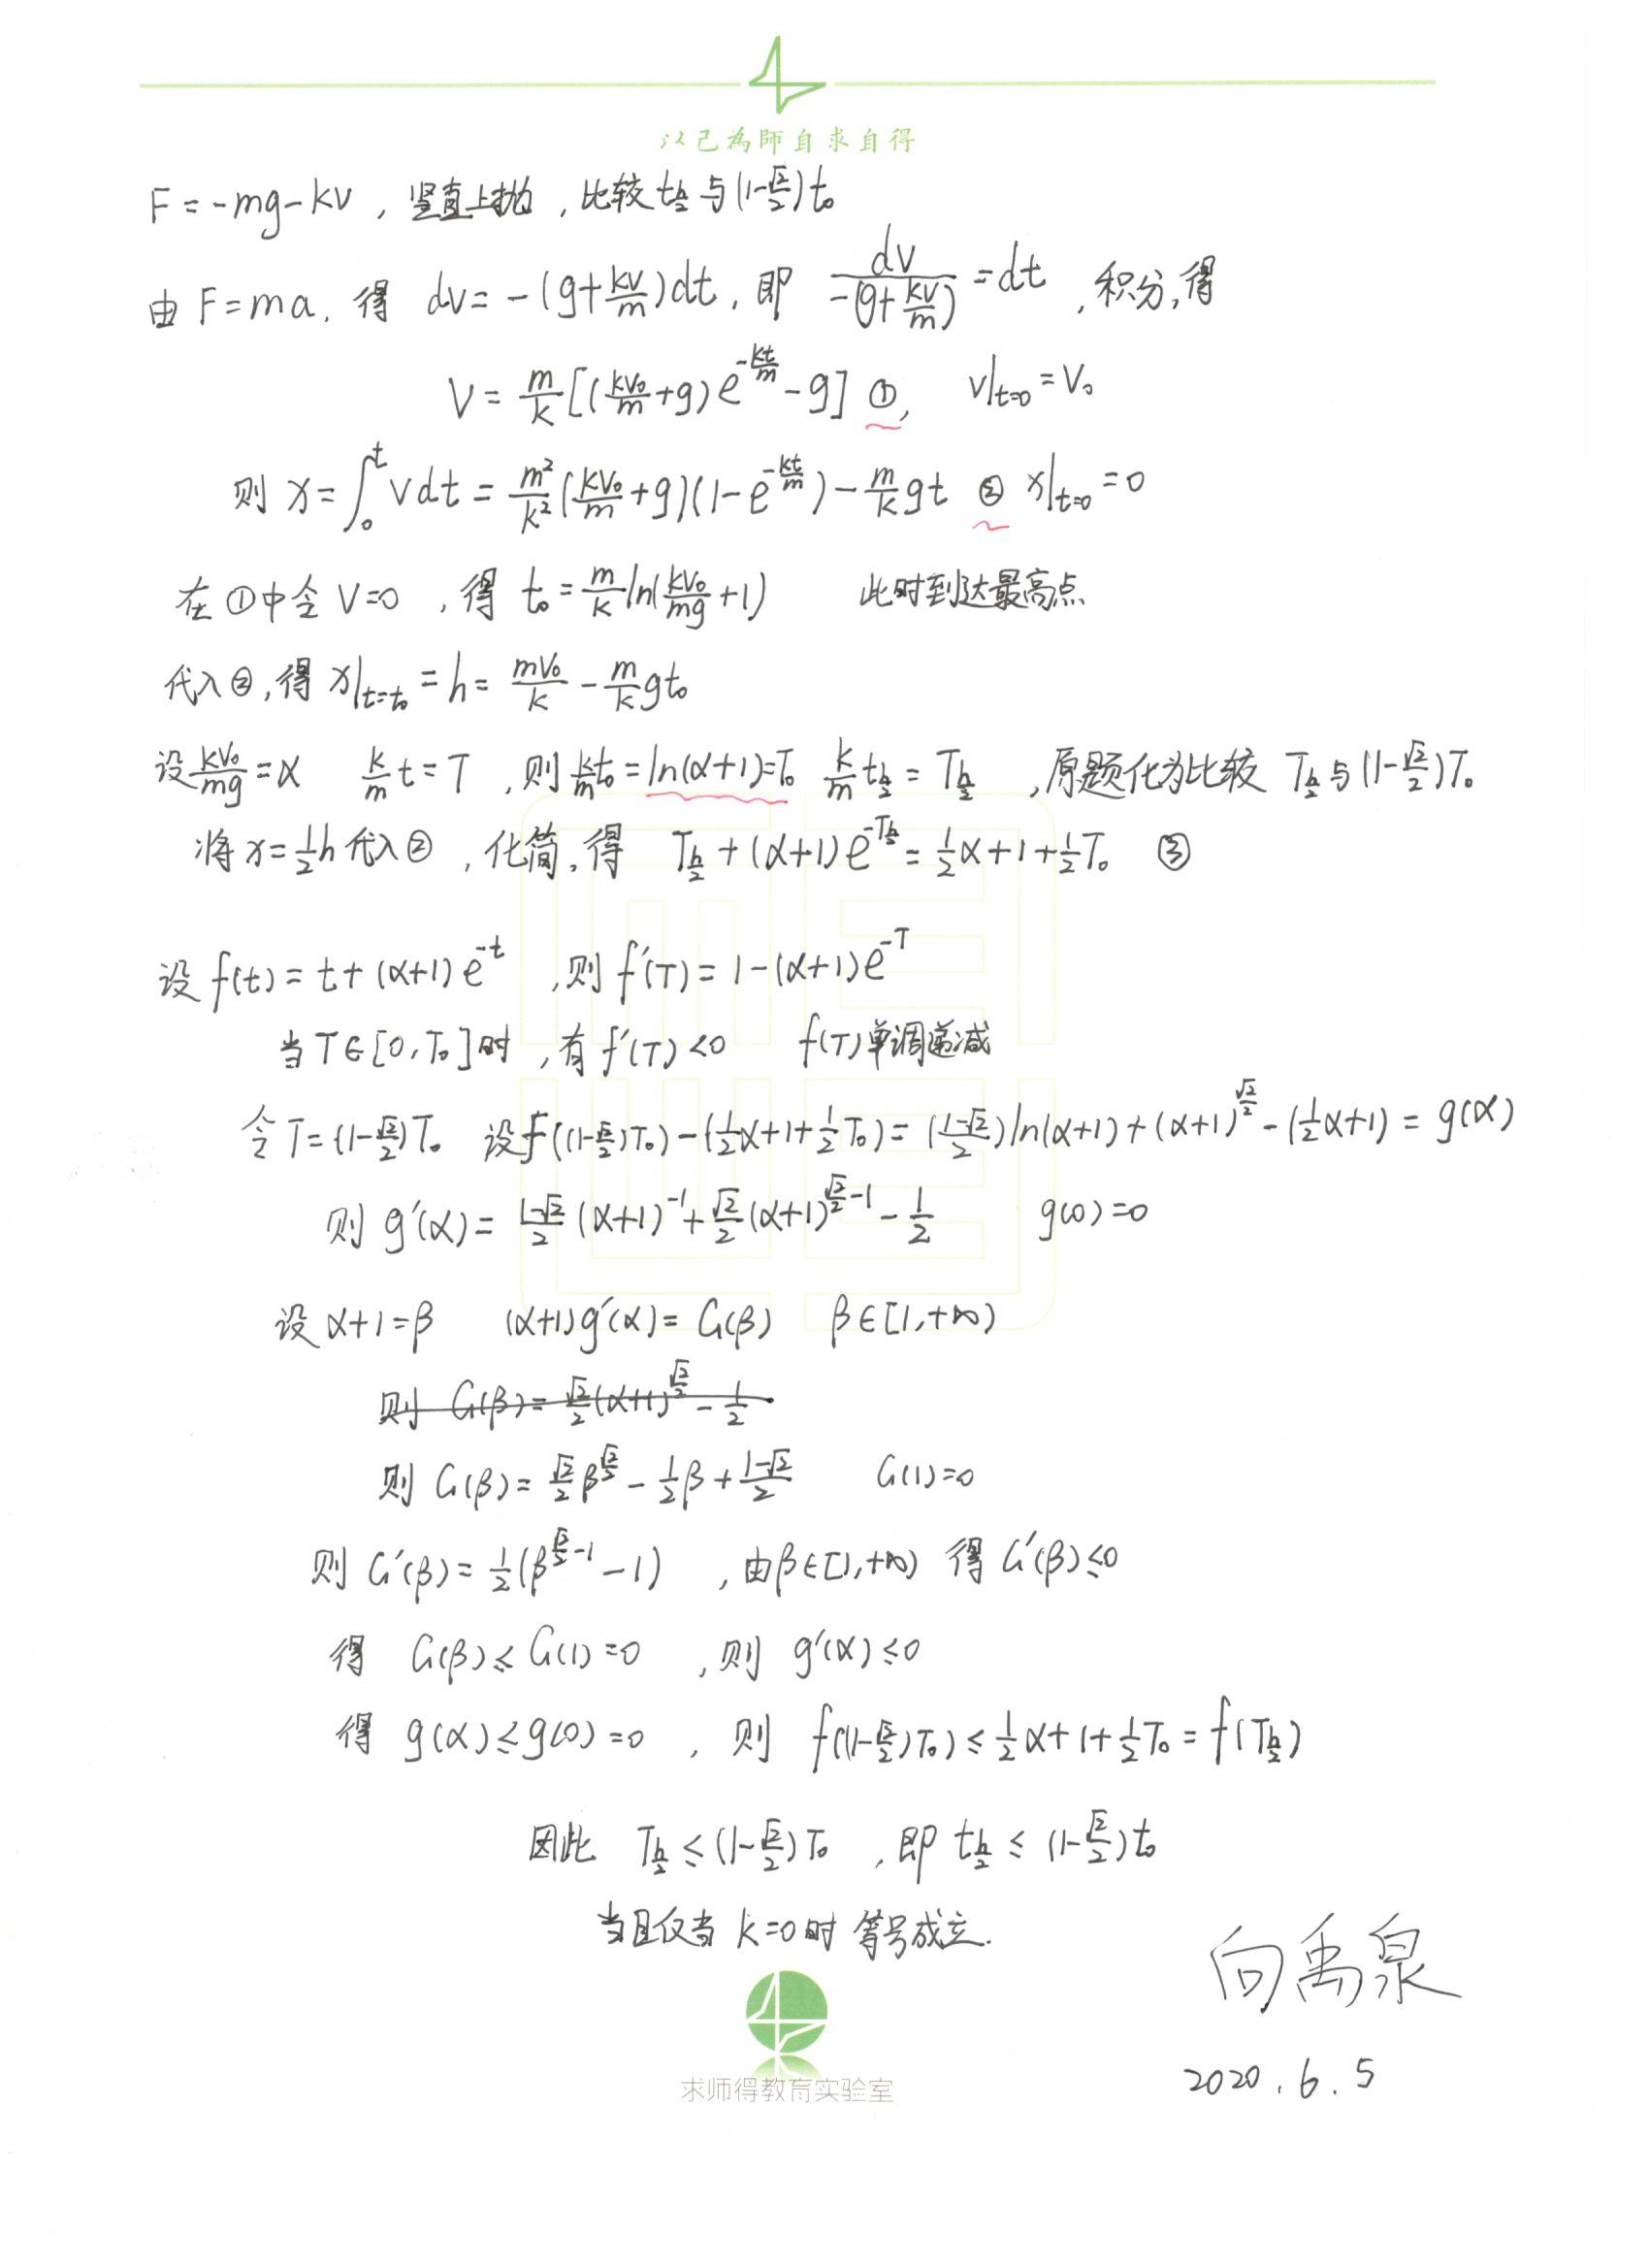 以己為師自求自得
F=-mg-kv，竖直上抛，比较t_{h/2}与(1-√2/2)t₀
由F=ma，得 dv=-(g+kv/m)dt，即 dv/(-(g+kv/m))=dt，积分，得
V=m/k[(kv₀/m+g)e^{-kt/m}-g] ①， v|_{t=0}=V₀
则 x=∫₀ᵗvdt=m²/k²(kv₀/m+g)(1-e^{-kt/m})-m/k gt ② x|_{t=0}=0
在①中令V=0，得 t₀=m/k ln(kv₀/mg+1) 此时到达最高点
代入②，得x|_{t=t₀}=h=mv₀/k-m/k gt₀
设kv₀/mg=α k/m t=T，则k/m t₀=ln(α+1)=T₀ k/m t_{h/2}=T_{h/2}，原题化为比较 T_{h/2}与(1-√2/2)T₀
将x=1/2h代入②，化简，得 T_{h/2}+(α+1)e^{-T_{h/2}}=1/2α+1+1/2T₀ ③
设f(t)=t+(α+1)e^{-t}，则f'(T)=1-(α+1)e^{-T}
当T∈[0,T₀]时，有f'(T)<0 f(T)单调递减
令T=(1-√2/2)T₀ 设f((1-√2/2)T₀)-(1/2α+1+1/2T₀)=((1-√2)/2)ln(α+1)+(α+1)^{√2/2}-(1/2α+1)=g(α)
则g'(α)=(1-√2)/2(α+1)^{-1}+√2/2(α+1)^{√2/2-1}-1/2 g(0)=0
设α+1=β (α+1)g'(α)=G(β) β∈[1,+∞)
则 G(β)=√2/2(α+1)^{√2/2}-1/2
则G(β)=√2/2β^{√2/2}-1/2β+(1-√2)/2 G(1)=0
则G'(β)=1/2(β^{√2/2-1}-1)，由β∈[1,+∞) 得G'(β)≤0
得 G(β)≤G(1)=0，则 g'(α)≤0
得 g(α)≤g(0)=0，则 f((1-√2/2)T₀)≤1/2α+1+1/2T₀=f(T_{h/2})
因此 T_{h/2}≤(1-√2/2)T₀，即t_{h/2}≤(1-√2/2)t₀
当且仅当k=0时等号成立.
向禹泉
2020.6.5
求师得教育实验室